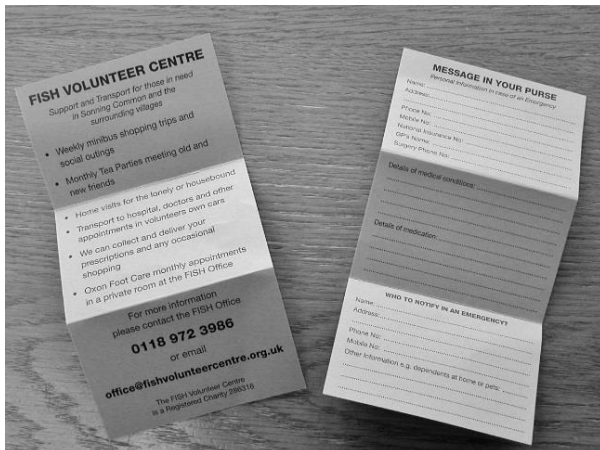 FISH VOLUNTEER CENTRE
Support and Transport for those in need
in Sonning Common and the
surrounding villages
• Weekly minibus shopping trips and
social outings
• Monthly Tea Parties meeting old and
new friends
• Home visits for the lonely or housebound
• Transport to hospital, doctors and other
appointments in volunteers own cars
• We can collect and deliver your
prescriptions and any occasional
shopping
• Oxon Foot Care monthly appointments
in a private room at the FISH Office
For more information
please contact the FISH Office
0118 972 3986
or email
office@fishvolunteercentre.org.uk
The FISH Volunteer Centre
is a Registered Charity 286316
MESSAGE IN YOUR PURSE
Personal Information in case of an Emergency
Name:
Address:
Phone No:
Mobile No:
National Insurance No:
GP's Name:
Surgery Phone No:
Details of medical conditions:
Details of medication:
WHO TO NOTIFY IN AN EMERGENCY?
Name:
Address:
Phone No:
Mobile No:
Other Information e.g. dependents at home or pets: